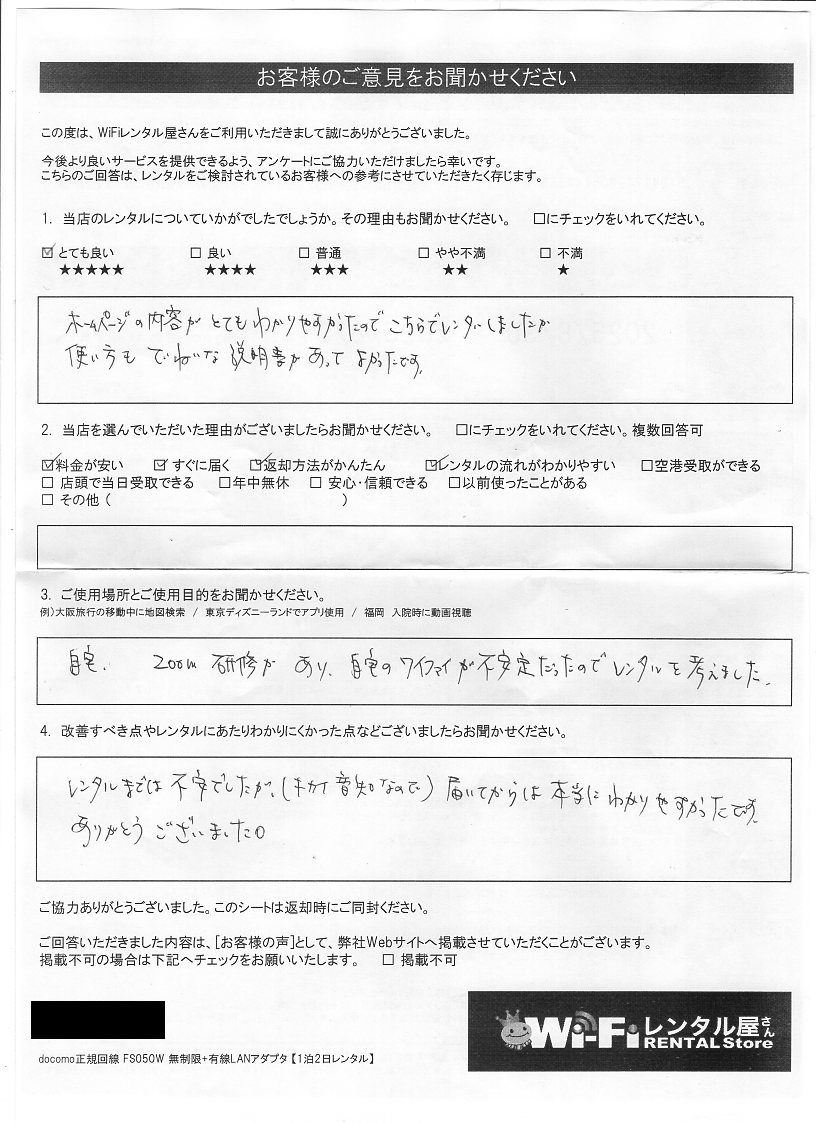 お客様のご意見をお聞かせください
この度は、WiFiレンタル屋さんをご利用いただきまして誠にありがとうございました。
今後より良いサービスを提供できるよう、アンケートにご協力いただけましたら幸いです。
こちらのご回答は、レンタルをご検討されているお客様への参考にさせていただきたく存じます。
1. 当店のレンタルについていかがでしたでしょうか。その理由もお聞かせください。 □にチェックをいれてください。
☑ とても良い □ 良い □ 普通 □ やや不満 □ 不満
★★★★★ ★★★★ ★★★ ★★ ★
ホームページの内容がとてもわかりやすかったのでこちらでレンタルしましたが
使い方もていねいな説明書があってよかったです。
2. 当店を選んでいただいた理由がございましたらお聞かせください。 □にチェックをいれてください。複数回答可
☑料金が安い ☑すぐに届く ☑返却方法がかんたん ☑レンタルの流れがわかりやすい □空港受取ができる
□ 店頭で当日受取できる □年中無休 □ 安心・信頼できる □以前使ったことがある
□ その他 ( )
3. ご使用場所とご使用目的をお聞かせください。
例)大阪旅行の移動中に地図検索 / 東京ディズニーランドでアプリ使用 / 福岡 入院時に動画視聴
自宅. Zoom研修があり、自宅のワイファイが不安定だったのでレンタルを考えました。
4. 改善すべき点やレンタルにあたりわかりにくかった点などございましたらお聞かせください。
レンタルまでは不安でしたが、(キカイ音知なので)届いてからは本当にわかりやすかったです。
ありがとうございました。
ご協力ありがとうございました。このシートは返却時にご同封ください。
ご回答いただきました内容は、[お客様の声]として、弊社Webサイトへ掲載させていただくことがございます。
掲載不可の場合は下記へチェックをお願いいたします。 □ 掲載不可
Wi-Fiレンタル屋さん
RENTAL Store
docomo正規回線 FS050W 無制限+有線LANアダプタ【1泊2日レンタル】